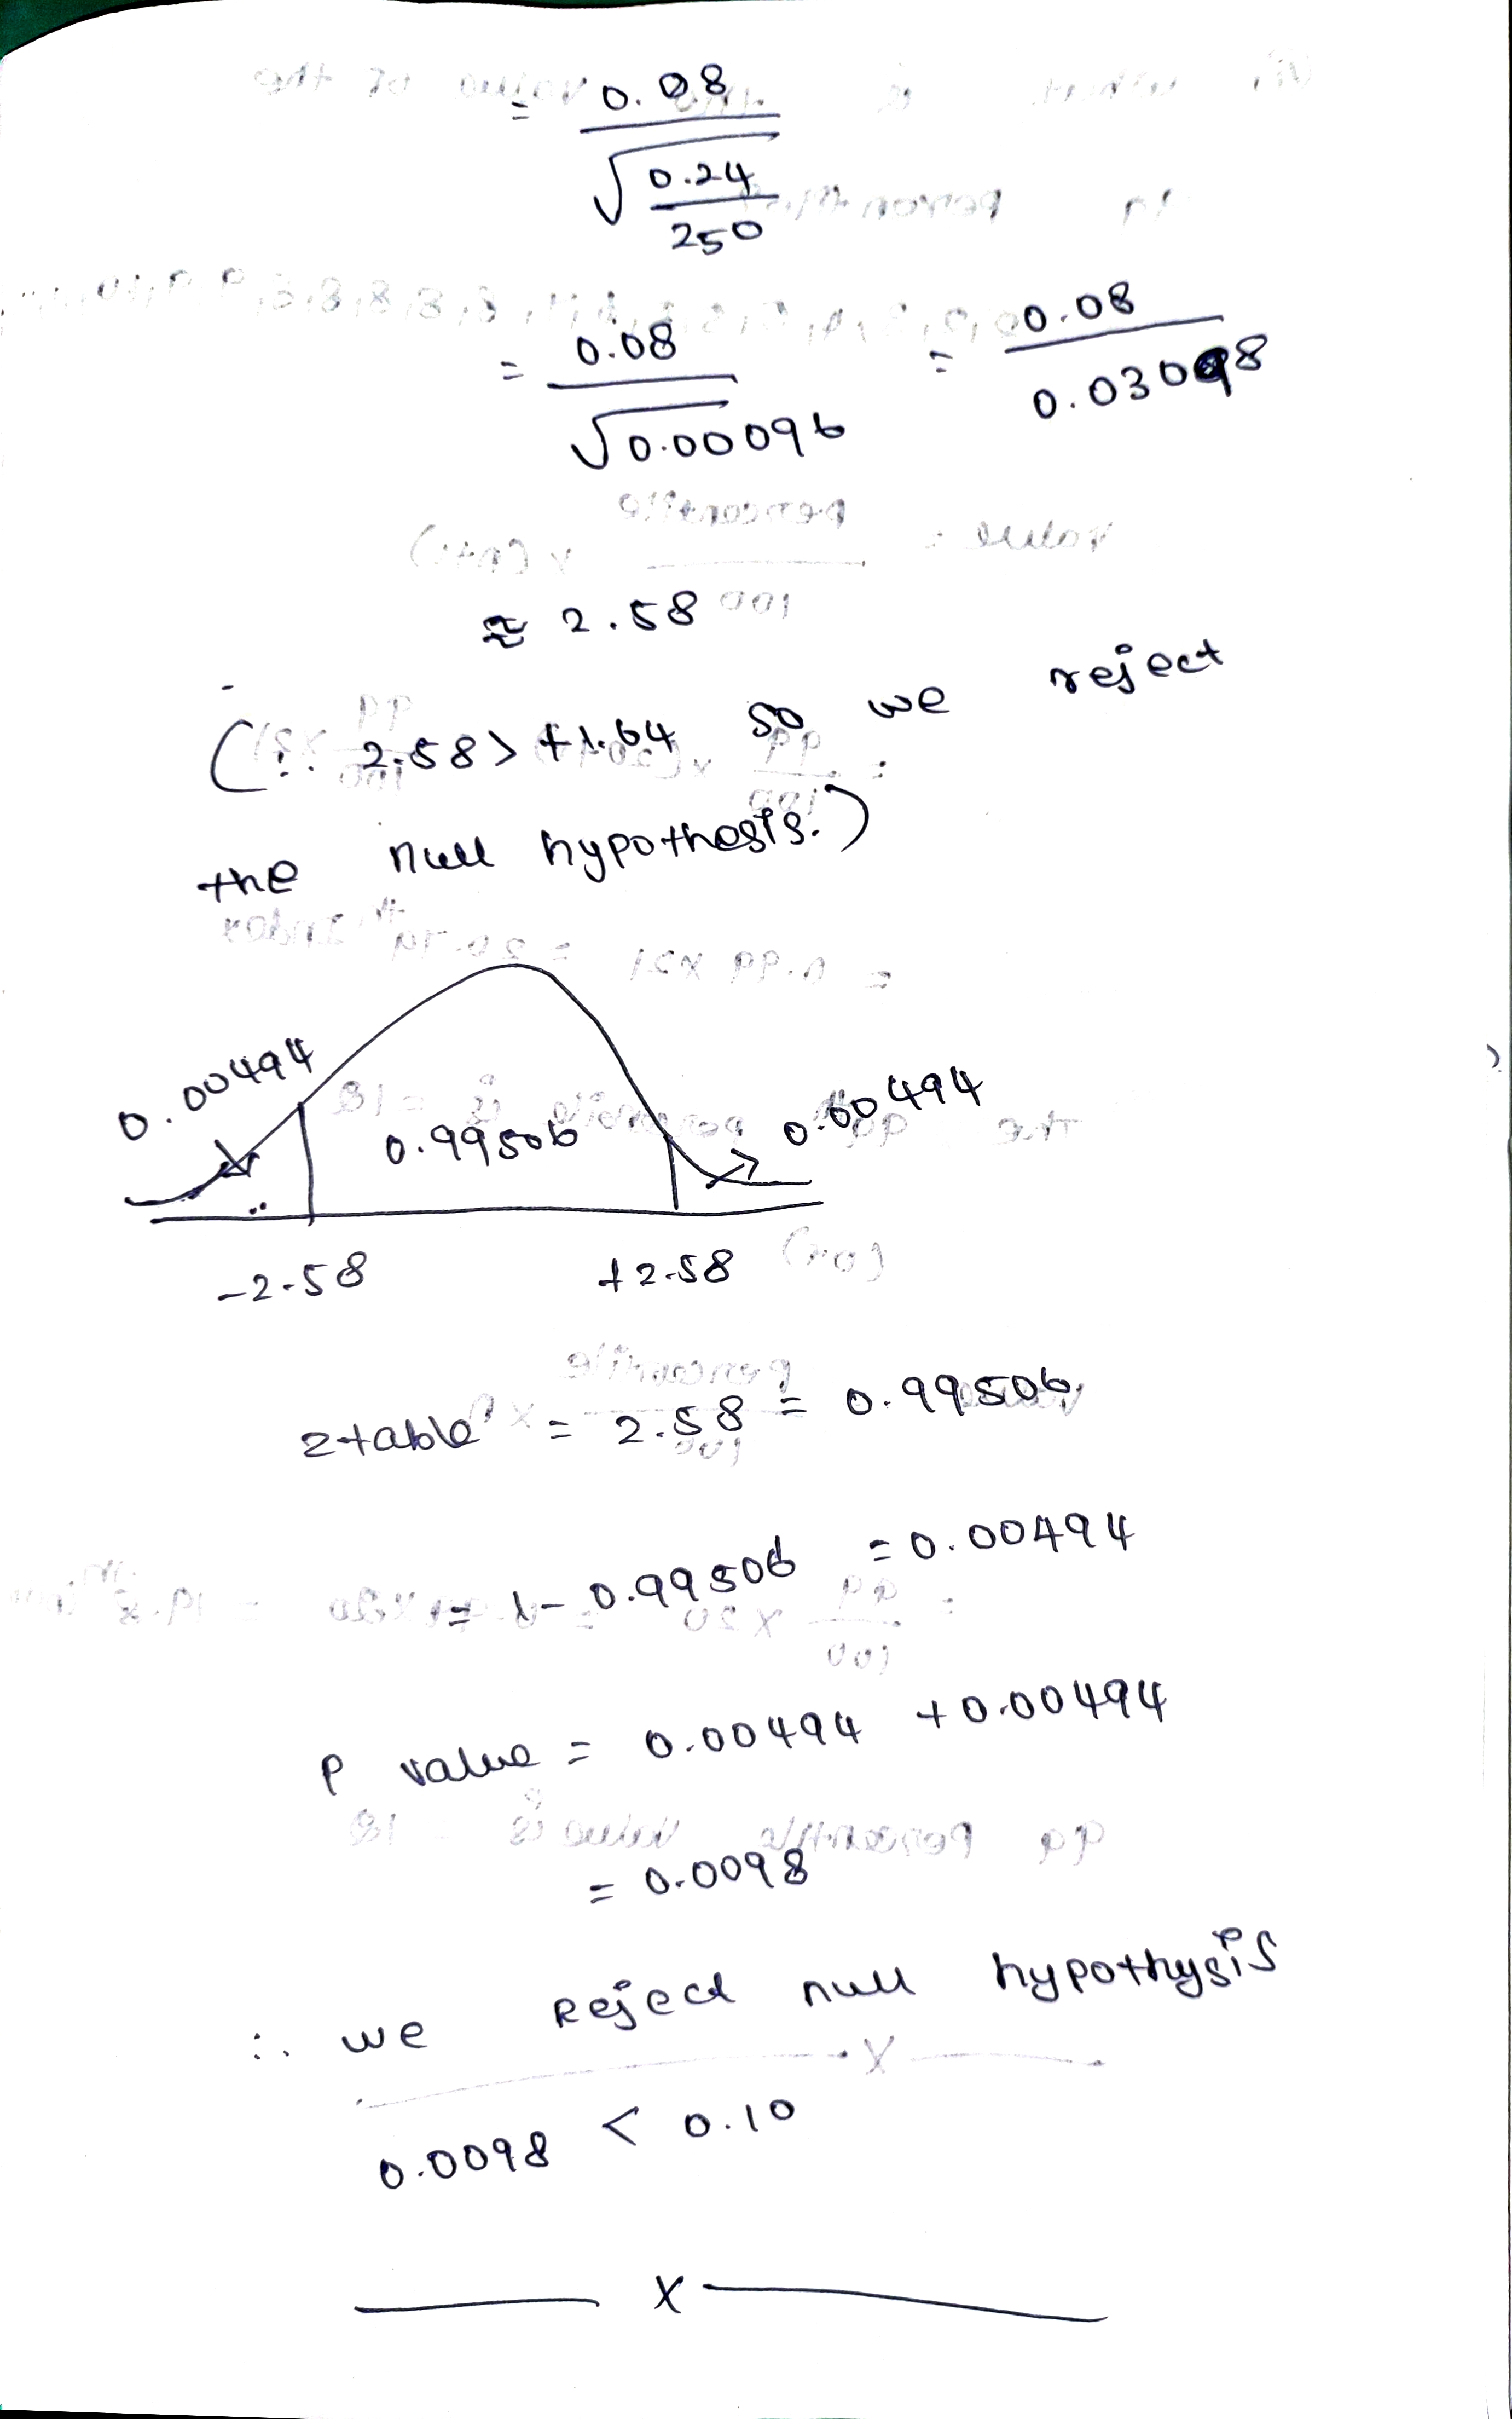 = 0.08
√ 0.24
250
= 0.08 = 0.08
√0.00096 0.03098
≈ 2.58
(∵ 2.58 > +1.64 so we reject
the null hypothesis.)
0.00494 0.99506 0.00494
-2.58 +2.58
z table = 2.58 = 0.99506
= 1 - 0.99506 = 0.00494
P value = 0.00494 + 0.00494
= 0.0098
∴ we Reject null hypothysis
0.0098 < 0.10
x